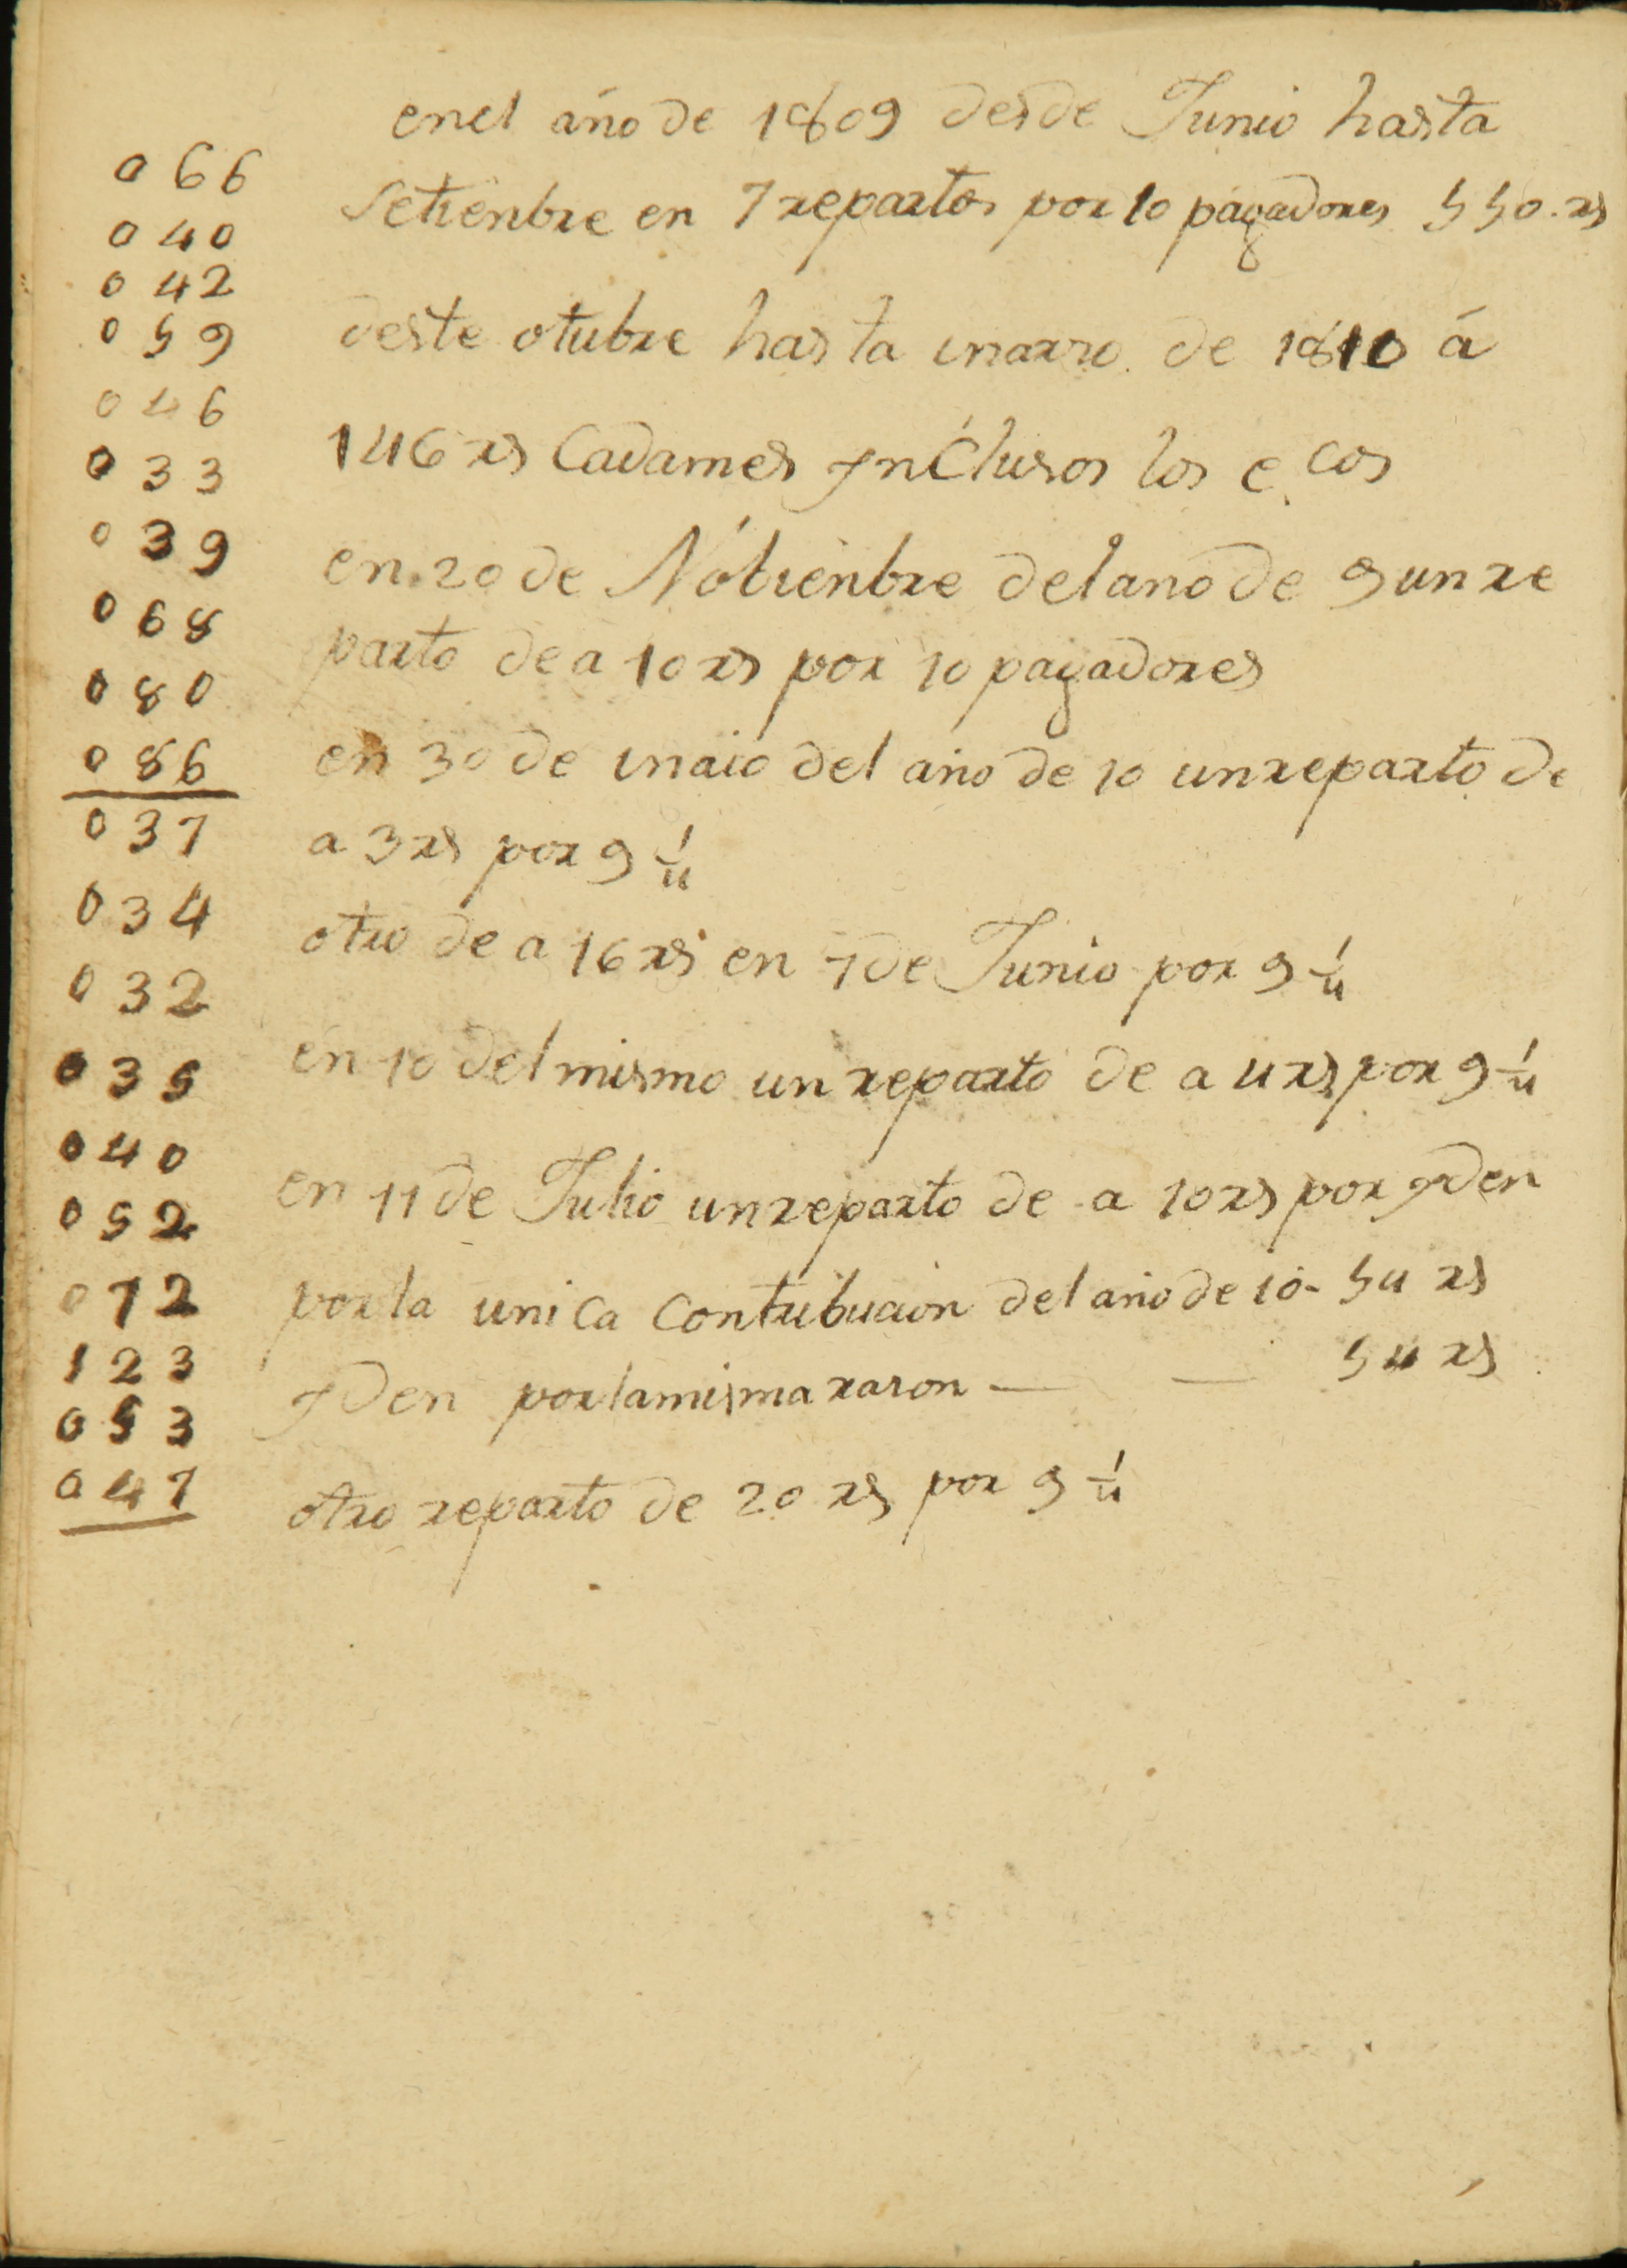 en el año de 1809 desde Junio hasta
Setienbre en 7 repartos por 10 pagadores 550. rs
deste otubre hasta marzo de 1810 á
146 rs Cadames Ynclusos los e.cos
en 20 de Nobienbre del ano de 9 un re
parto de a 10 rs por 10 pagadores
en 30 de maio del año de 10 un reparto de
a 3 rs por 9 1/4
otro de a 16 rs en 7 de Junio por 9 1/4
en 10 del mismo un reparto de a 4 rs por 9 1/4
en 11 de Julio un reparto de a 10 rs por yden
por la unica Contribucion del año de 10 - 54 rs
yden por la misma rason — — 54 rs
otro reparto de 20 rs por 9 1/4
066
040
042
059
046
033
039
068
080
086
037
034
032
035
040
052
072
123
053
047